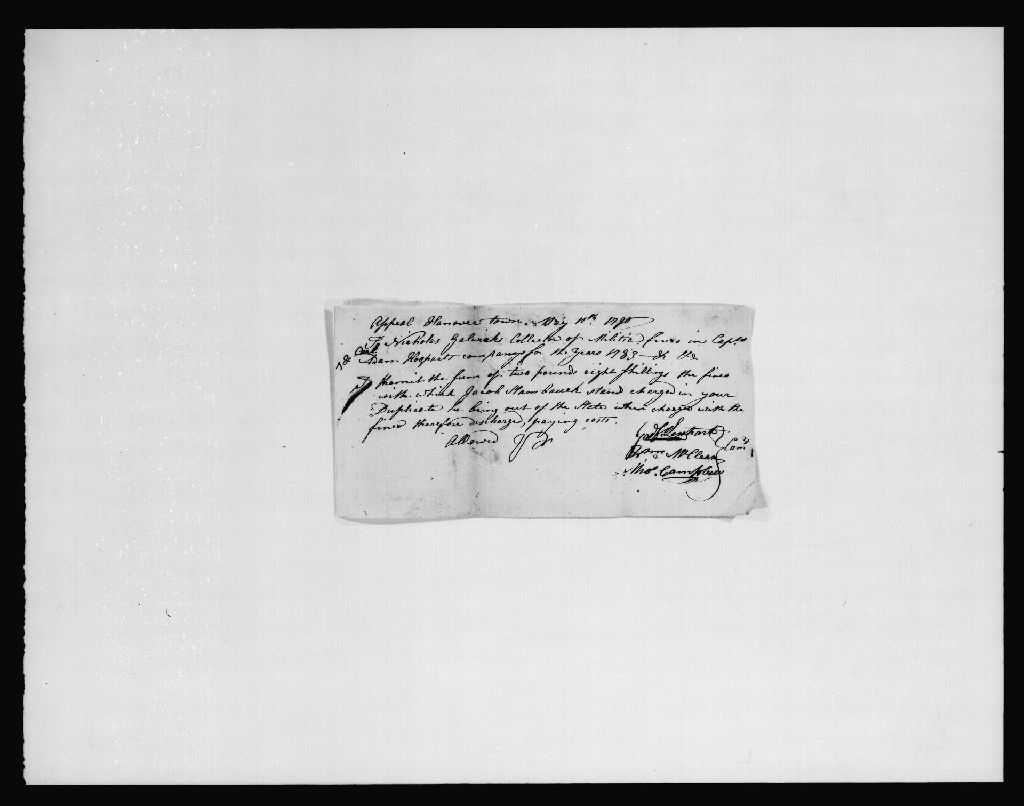 Appeal Hanover town May 11th
To Nicholas Collector of Militia fines in Capt
Adam company for the Years 1783
the sum of two pounds eight shillings the fines
with which Jacob Stambaugh stand charged in your
Duplicate he being out of the State when charged with the
fines therefore discharge, paying costs.
Allowed
Lenhart
Wm McClean Comy
Thos. Campbell